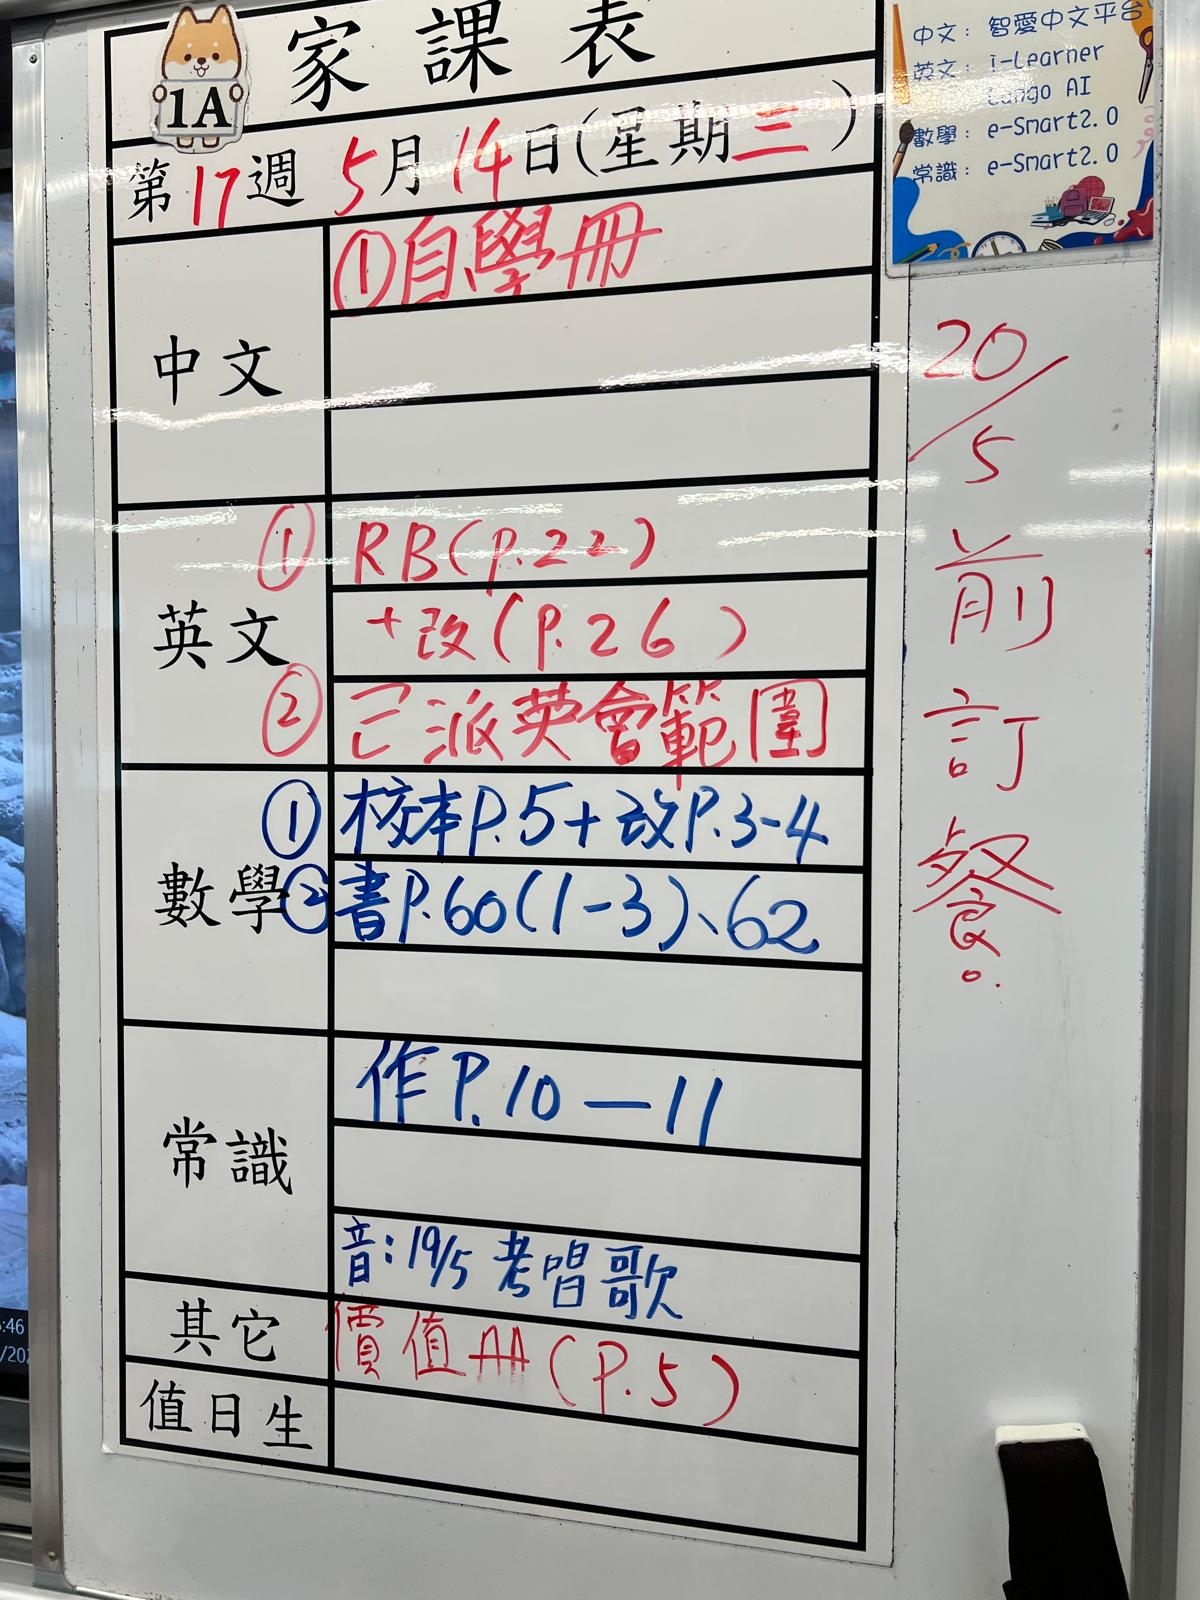 家課表
1A
第17週 5月14日(星期三)
中文
①自學冊
英文
① RB(P.22)
+改(P.26)
② 已派英會範圍
數學
① 校本P.5+改P.3-4
② 書P.60(1-3)、62
常識
作P.10—11
音:19/5 考唱歌
其它
價值AA(P.5)
值日生
中文: 智愛中文平台
英文: i-Learner
Lango AI
數學: e-Smart2.0
常識: e-Smart2.0
20/5
前
訂
餐。
:46